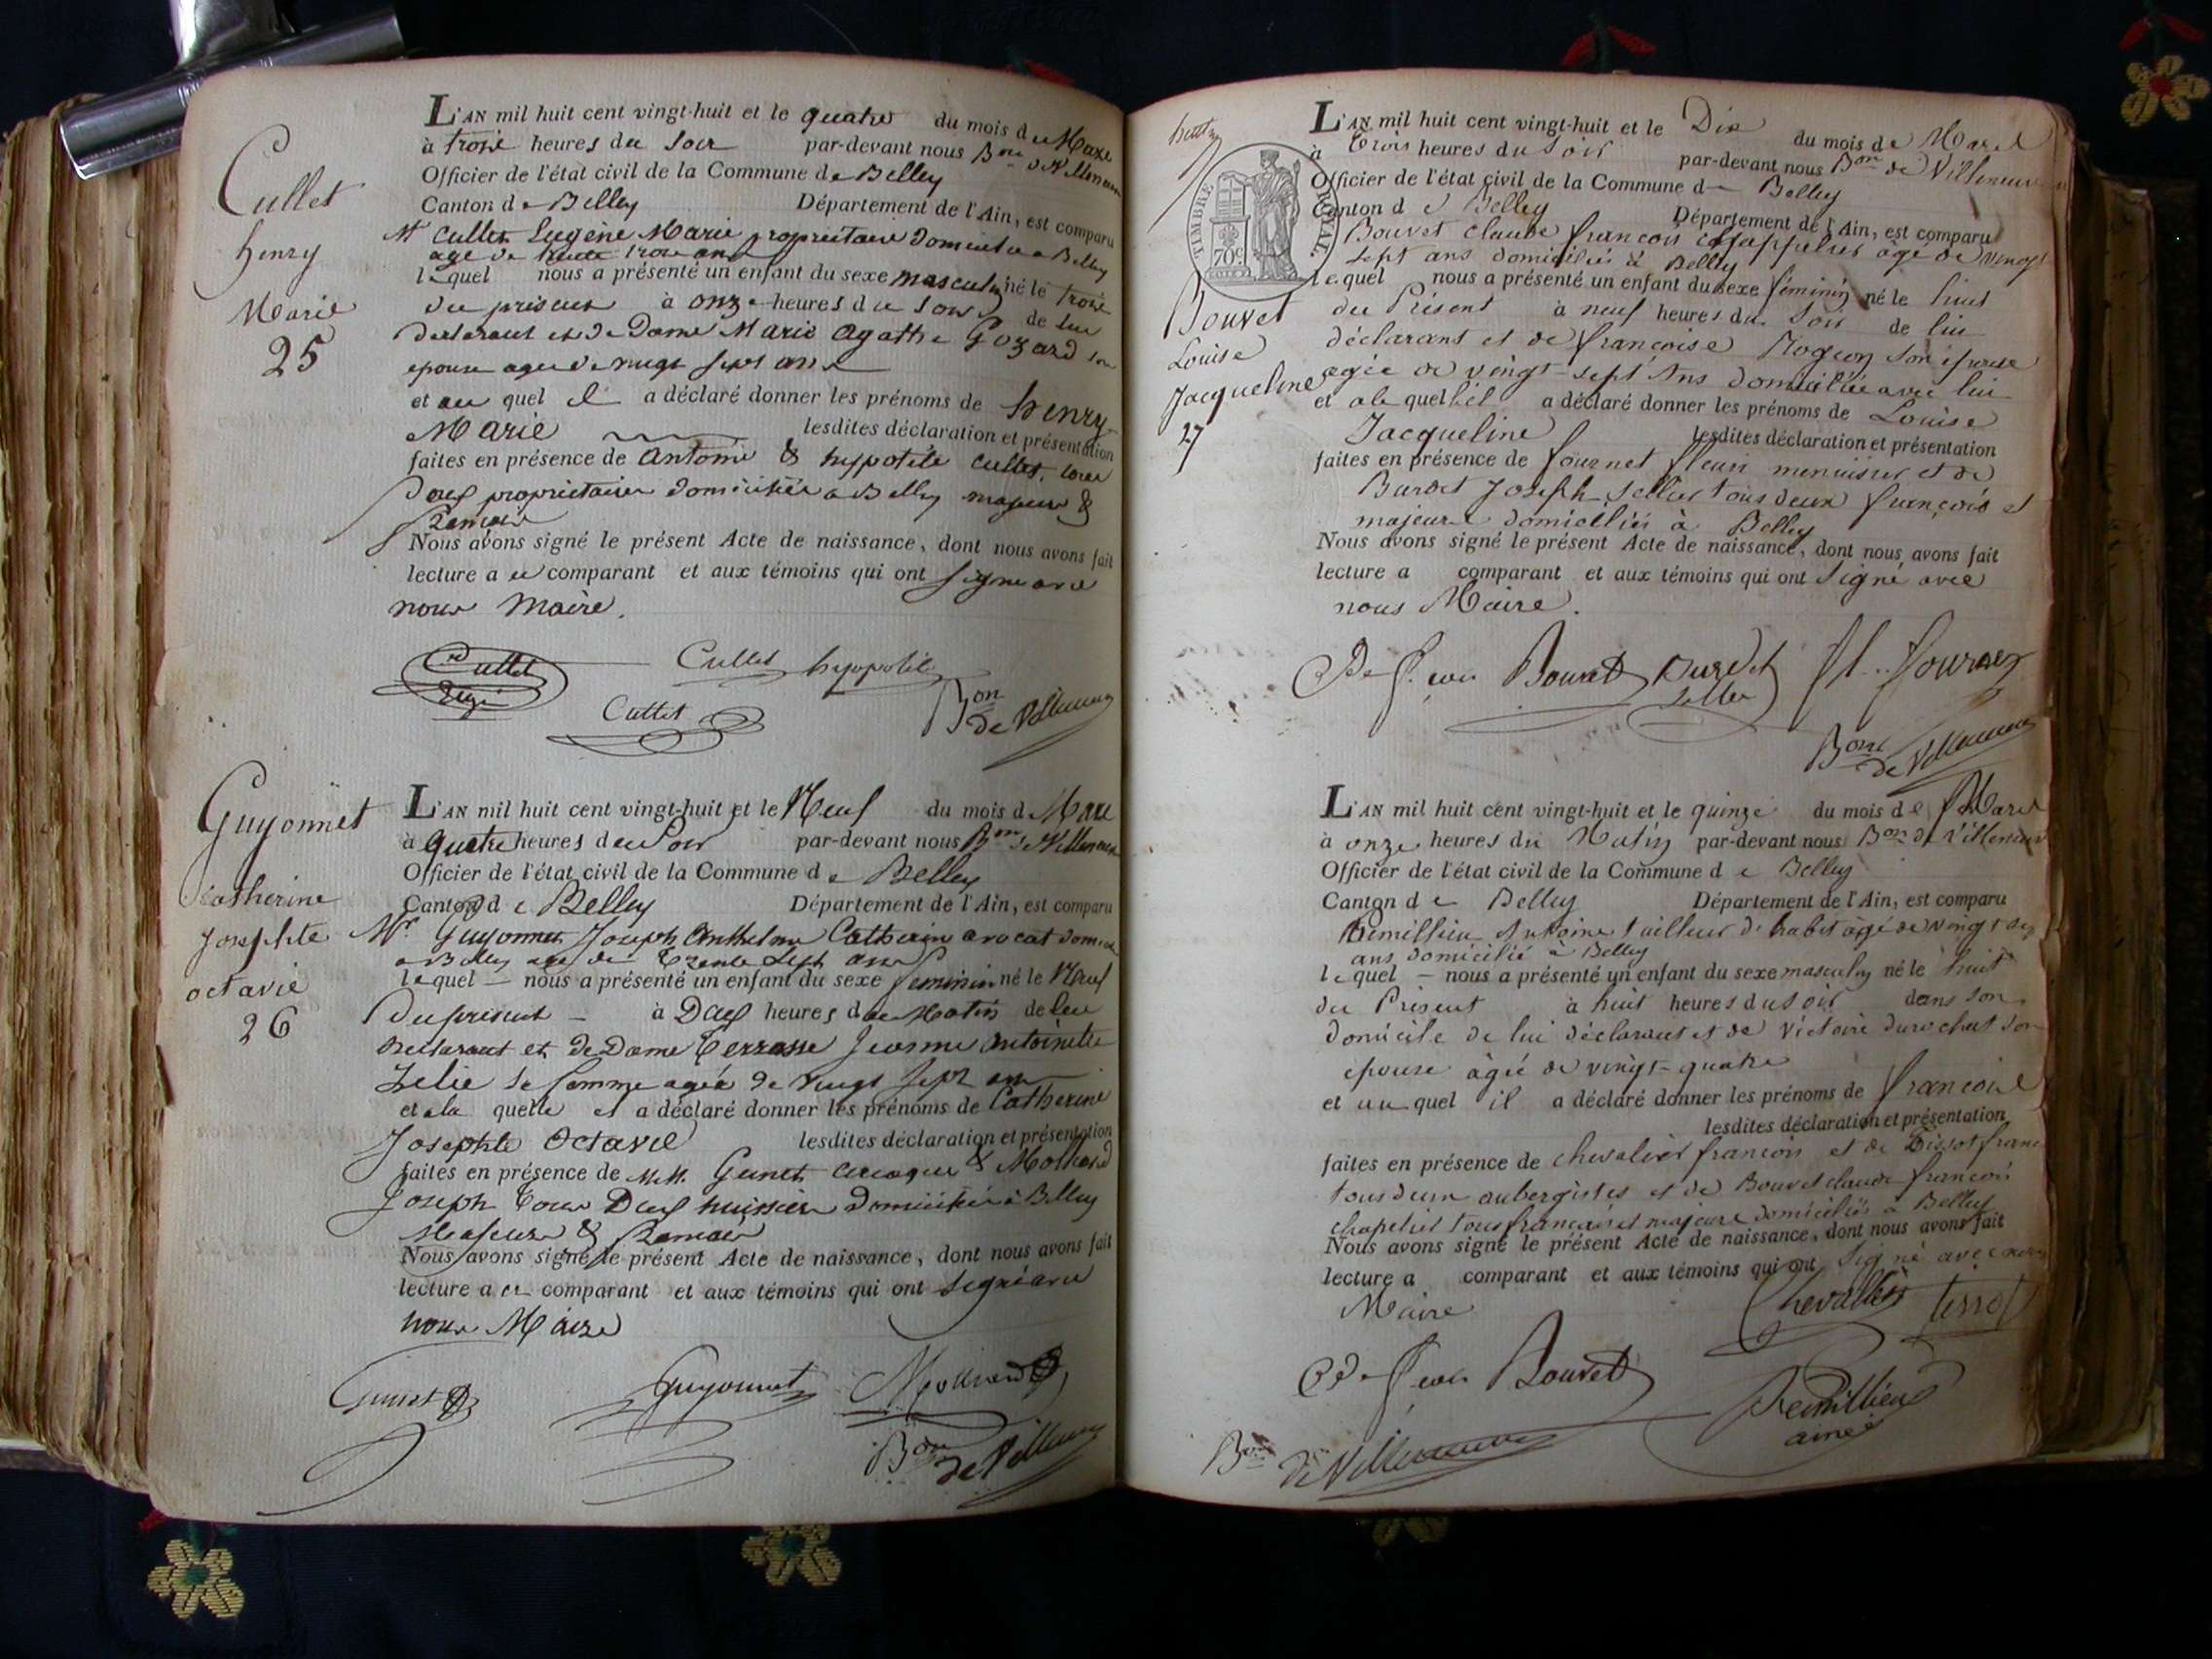 Cullet
henry
Marie
25
L'AN mil huit cent vingt-huit et le quatre du mois de Mars
à trois heures du soir par-devant nous Bon de Villeneuve
Officier de l'état civil de la Commune de Belley
Canton de Belley Département de l'Ain, est comparu
Mr Cullet Eugène Marie propriétaire domicilié a Belley
agé de trente trois ans
lequel nous a présenté un enfant du sexe masculin né le trois
du présent à onze heures du soir de lui
declarant et de Dame Marie Agathe Gozard son
epouse agée de vingt sept ans
et au quel il a déclaré donner les prénoms de henry
Marie lesdites déclaration et présentation
faites en présence de Antoine & hypolite Cullet, tous
Deux propriétaires domiciliés a Belley majeurs &
francais
Nous avons signé le présent Acte de naissance, dont nous avons fait
lecture a ce comparant et aux témoins qui ont signé avec
nous Maire.
Cullet
Cullet hyppolite
Cullet
Bon de Villeneuve
Guyonnet
Catherine
Josephte
octavie
26
L'AN mil huit cent vingt-huit et le Neuf du mois de Mars
à quatre heures du Soir par-devant nous Bon de Villeneuve
Officier de l'état civil de la Commune de Belley
Canton de Belley Département de l'Ain, est comparu
Mr Guyonnet Joseph Anthelme Catherin avocat domicilié
a Belley agé de trente sept ans
lequel nous a présenté un enfant du sexe feminin né le Neuf
du présent à Deux heures du Matin de lui
declarant et de Dame Terrasse Jeanne Antoinette
Zelie sa femme agée de vingt sept ans
et a la quelle il a déclaré donner les prénoms de Catherine
Josephte Octavie lesdites déclaration et présentation
faites en présence de MM. Gunet & Molliard
Joseph tous Deux huissiers domiciliés à Belley
Majeurs & francais
Nous avons signé le présent Acte de naissance, dont nous avons fait
lecture a ce comparant et aux témoins qui ont signé avec
nous Maire
Gunet Guyonnet Molliard
Bon de Villeneuve
TIMBRE ROYAL
70c
Bouvet
Louise
Jacqueline
27
L'AN mil huit cent vingt-huit et le Dix du mois de Mars
à trois heures du Soir par-devant nous Bon de Villeneuve
Officier de l'état civil de la Commune de Belley
Canton de Belley Département de l'Ain, est comparu
Bouvet claude françois chappelier âgé de vingt
sept ans domicilié à Belley
lequel nous a présenté un enfant du sexe féminin né le huit
du Présent à neuf heures du Soir de lui
déclarant et de françoise Rogeon son épouse
agée de vingt-sept ans domiciliée avec lui
et a la quelle il a déclaré donner les prénoms de Louise
Jacqueline lesdites déclaration et présentation
faites en présence de fournet fleuri menuisier et de
Burdet Joseph Sellier tous deux françois et
majeurs domiciliés à Belley
Nous avons signé le présent Acte de naissance, dont nous avons fait
lecture a comparant et aux témoins qui ont Signé avec
nous Maire.
Bouvet Burdet fl. fournet
Sellier
Bon de Villeneuve
L'AN mil huit cent vingt-huit et le quinze du mois de Mars
à onze heures du Matin par-devant nous Bon de Villeneuve
Officier de l'état civil de la Commune de Belley
Canton de Belley Département de l'Ain, est comparu
Remillieu Antoine tailleur d'habit âgé de vingt
ans domicilié à Belley
lequel nous a présenté un enfant du sexe masculin né le huit
du Présent à huit heures du soir dans son
domicile de lui déclarant et de Victoire durochat son
epouse âgée de vingt-quatre
et au quel il a déclaré donner les prénoms de françois
lesdites déclaration et présentation
faites en présence de chevalier françois et de Tissot
tous deux aubergistes et de Bouvet claude françois
chapelier tous français et majeurs domiciliés a Belley
Nous avons signé le présent Acte de naissance, dont nous avons fait
lecture a comparant et aux témoins qui ont Signé avec nous
Maire
Chevallier tissot
Bouvet
Remillieu
ainé
Bon de Villeneuve